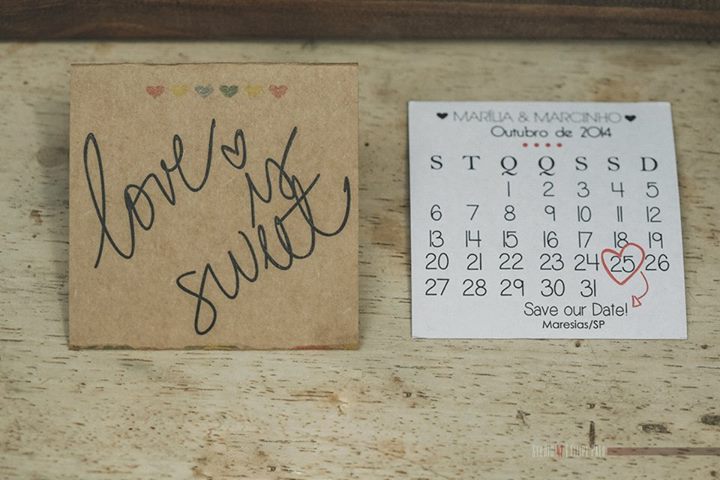 love is
sweet
MARÍLIA & MARCINHO
Outubro de 2014
S T Q Q S S D
1 2 3 4 5
6 7 8 9 10 11 12
13 14 15 16 17 18 19
20 21 22 23 24 25 26
27 28 29 30 31
Save our Date!
Maresias/SP